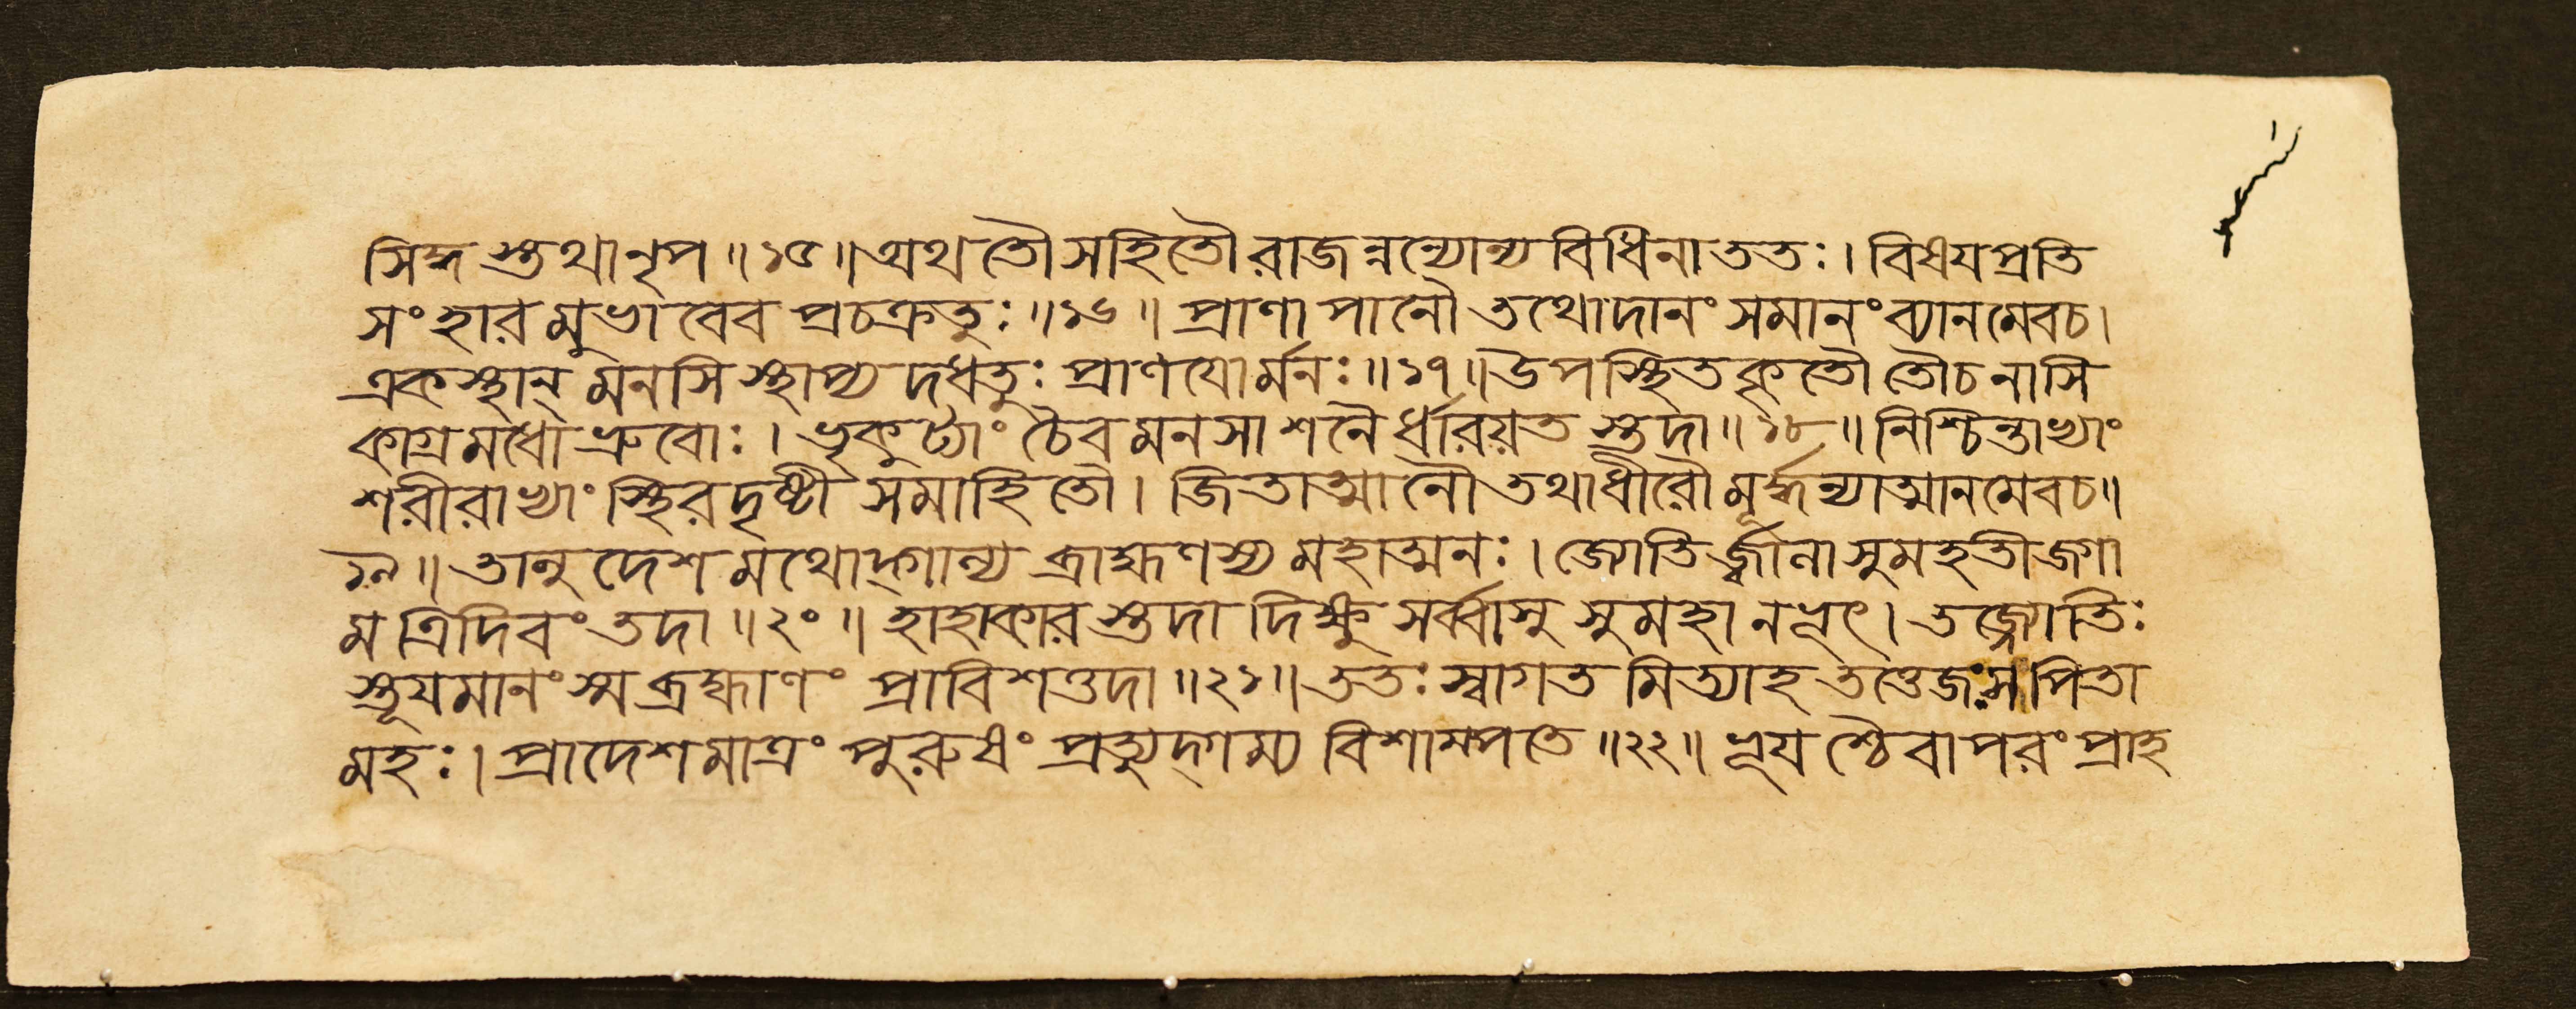 সিদ্ধস্তথানৃপ॥১৫॥অথতৌসহিতৌরাজন্নন্যোন্যবিধিনাততঃ।বিষয়প্রতি
সংহারমুভাবেবপ্রচক্রতুঃ॥১৬॥প্রাণাপানৌতথোদানংসমানংব্যানমেবচ।
একস্থান্মনসিস্থাপ্যদধতুঃপ্রাণযোর্মনঃ॥১৭॥উপস্থিতকৃতৌতৌচনাসি
কাগ্রমধোভ্রুবোঃ।ভৃকুট্যাংচৈবমনসাশনৈর্ধারয়তস্তদা॥১৮॥নিশ্চিন্তাভ্যাং
শরীরাভ্যাংস্থিরদৃষ্টীসমাহিতৌ।জিতাত্মানৌতথাধীরৌমূর্দ্ধন্যাত্মানমেবচ॥
১৯॥তালুদেশমথোদ্গাল্যব্রাহ্মণস্যমহাত্মনঃ।জ্যোতির্জ্বালাসুমহতীজগা
মত্রিদিবংতদা॥২০॥হাহাকারস্তদাদিক্ষুসর্ব্বাসুসুমহানভূৎ।তজ্জ্যোতিঃ
স্তূযমানংস্মব্রহ্মাণংপ্রাবিশত্তদা॥২১॥ততঃস্বাগতমিত্যাহতত্তেজঃসপিতা
মহঃ।প্রাদেশমাত্রংপুরুষংপ্রত্যুদ্গম্যবিশাম্পতে॥২২॥ভূযশ্চৈবাপরংপ্রাহ